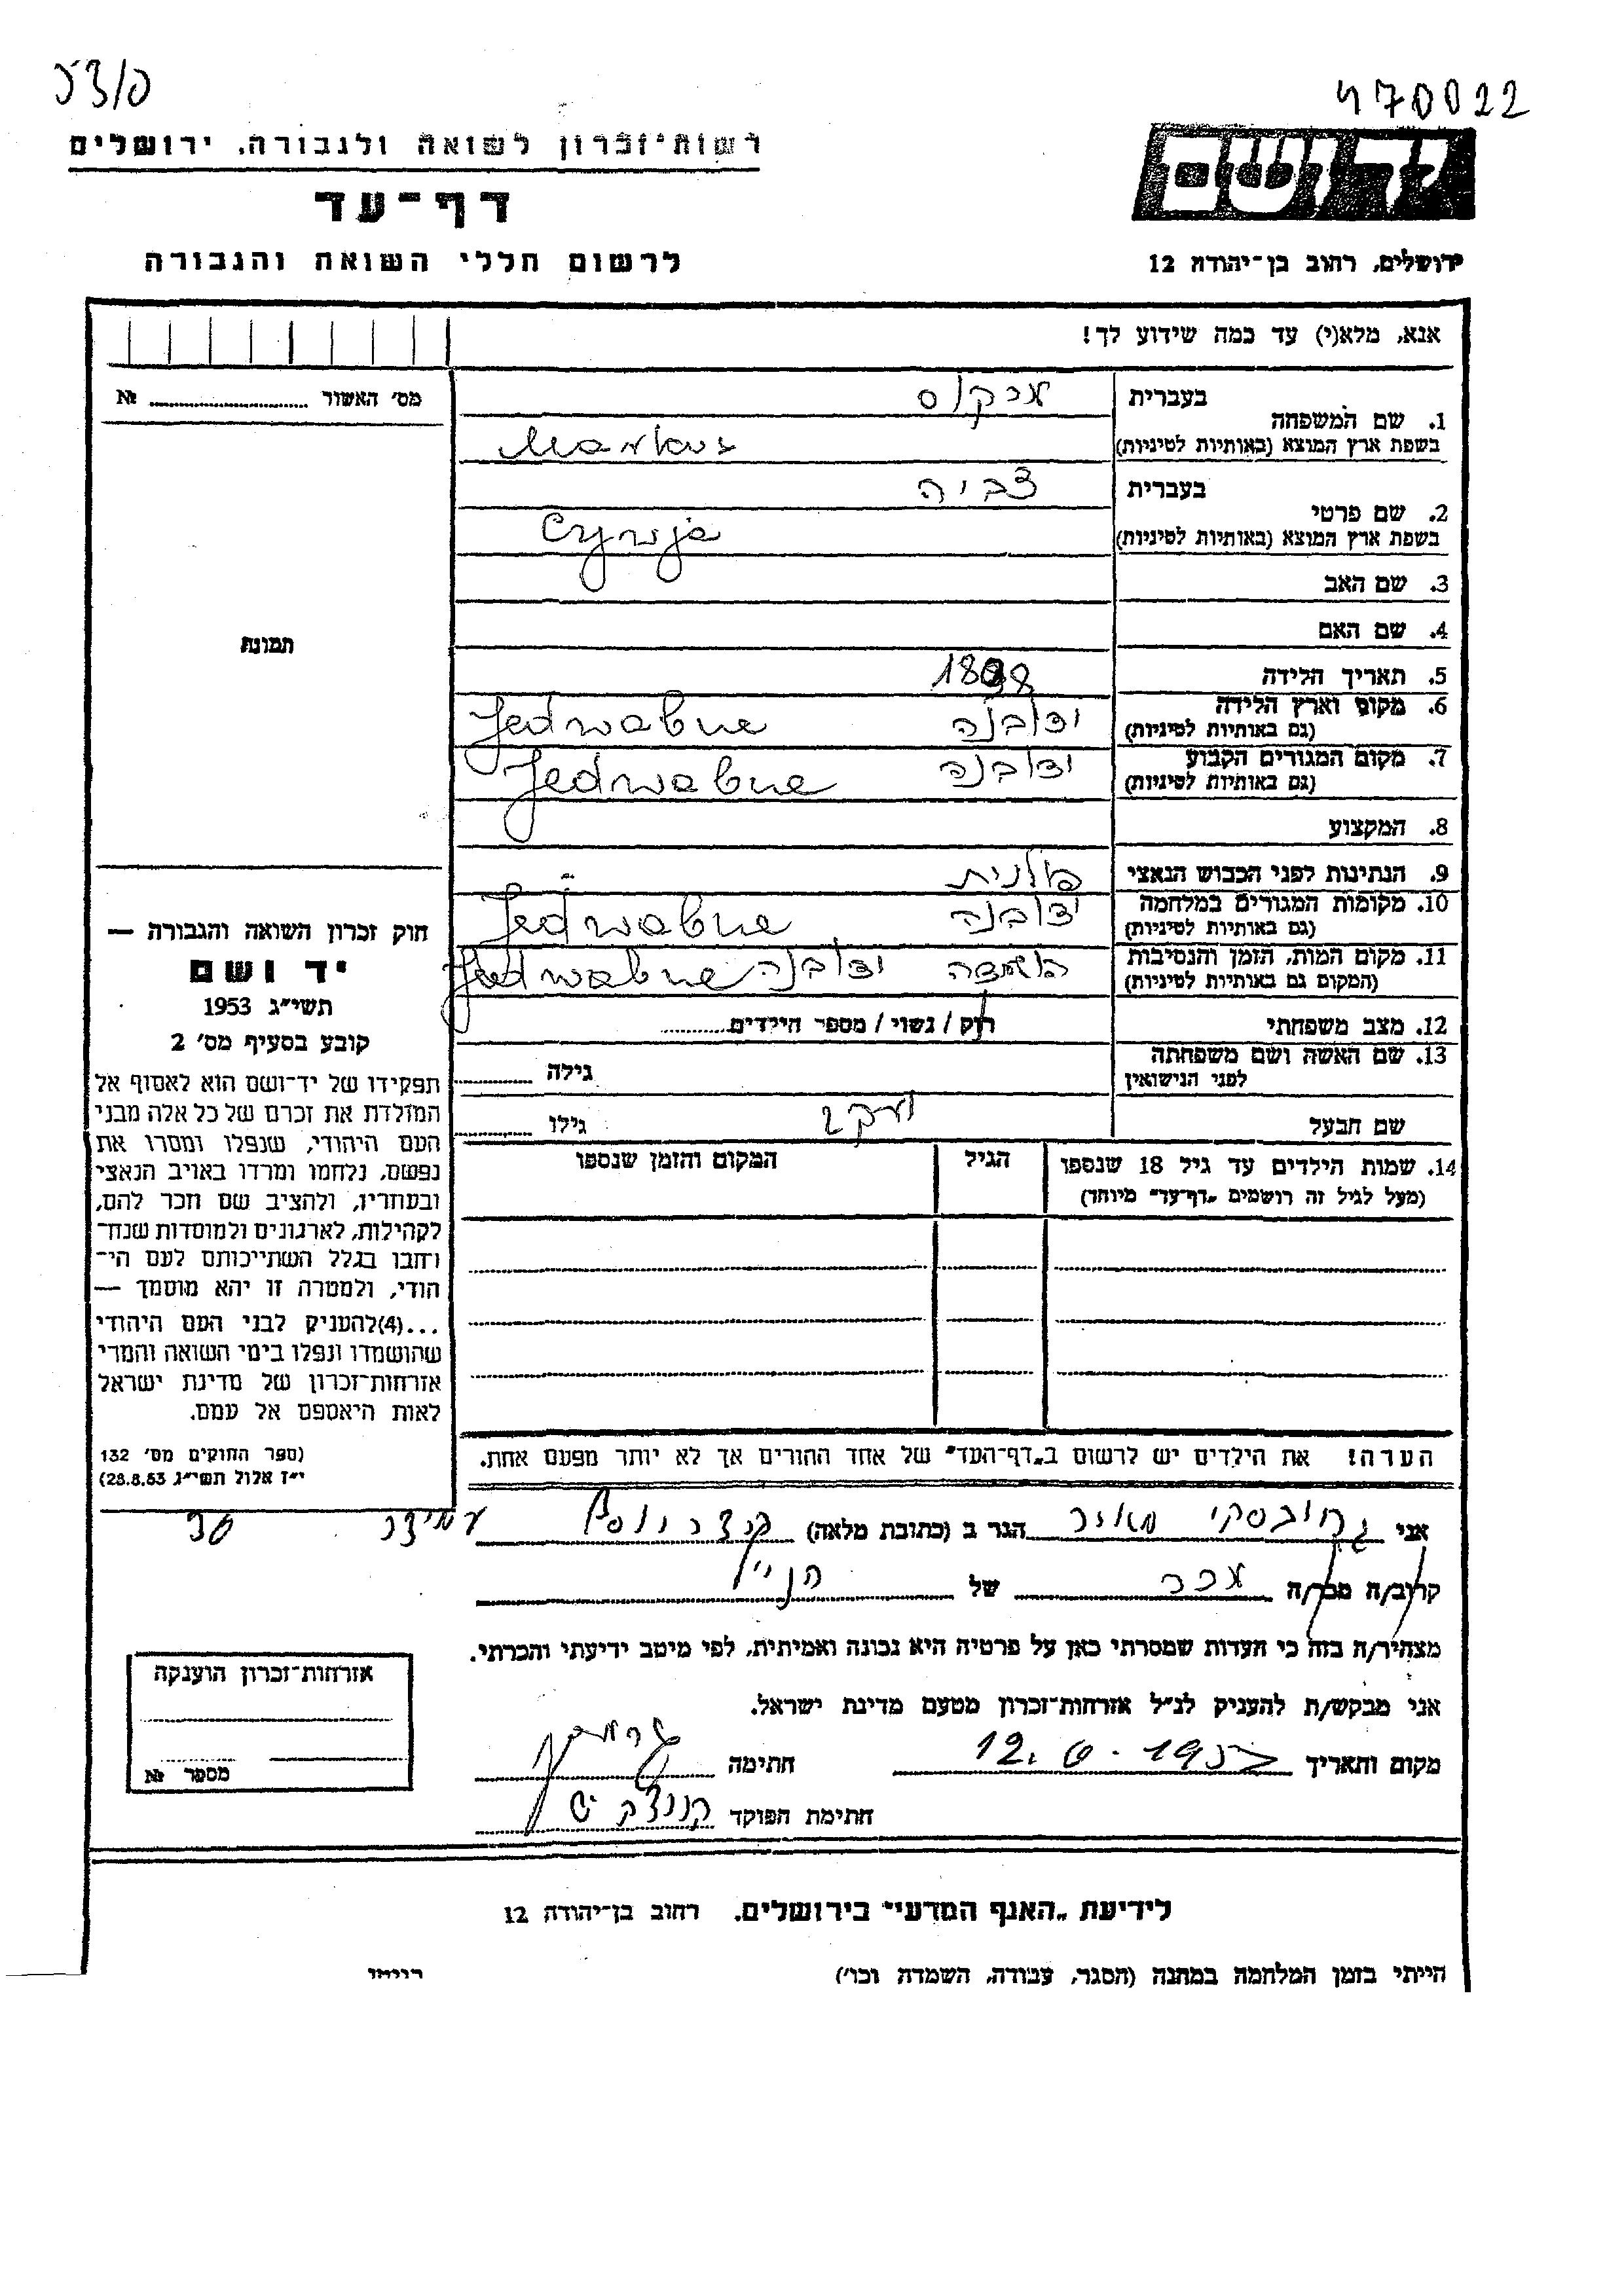 470022
רשות־זכרון לשואה ולגבורה, ירושלים
דף־עד
לרשום חללי השואה והגבורה
ידושם
ירושלים, רחוב בן־יהודה 12
אנא, מלא(י) עד כמה שידוע לך!
מס׳ האשור № 
1. שם המשפחה בעברית מרקוס
בשפת ארץ המוצא (באותיות לטיניות) Markus
2. שם פרטי בעברית צביה
בשפת ארץ המוצא (באותיות לטיניות) Cywja
3. שם האב
4. שם האם
5. תאריך הלידה 1898
6. מקום וארץ הלידה (גם באותיות לטיניות) ידובנה Jedwabne
7. מקום המגורים הקבוע (גם באותיות לטיניות) ידובנה Jedwabne
8. המקצוע
9. הנתינות לפני הכבוש הנאצי פולנית
10. מקומות המגורים במלחמה (גם באותיות לטיניות) ידובנה Jedwabne
11. מקום המות, הזמן והנסיבות (המקום גם באותיות לטיניות) ידובנה Jedwabne
12. מצב משפחתי רוק / נשוי / מספר הילדים
13. שם האשה ושם משפחתה לפני הנישואין גילה
שם הבעל יעקב גילו
14. שמות הילדים עד גיל 18 שנספו הגיל המקום והזמן שנספו
(מעל לגיל זה רושמים „דף־עד״ מיוחד)
תמונת
חוק זכרון השואה והגבורה —
יד ושם
תשי״ג 1953
קובע בסעיף מס׳ 2
תפקידו של יד־ושם הוא לאסוף אל
המולדת את זכרם של כל אלה מבני
העם היהודי, שנפלו ומסרו את
נפשם, נלחמו ומרדו באויב הנאצי
ובעוזריו, ולהציב שם וזכר להם,
לקהילות, לארגונים ולמוסדות שנח־
רבו בגלל השתייכותם לעם הי־
הודי, ולמטרה זו יהא מוסמך —
...(4)להעניק לבני העם היהודי
שהושמדו ונפלו בימי השואה והמרי
אזרחות־זכרון של מדינת ישראל
לאות היאספם אל עמם.
(ספר החוקים מס׳ 132
י״ז אלול תשי״ג 28.8.53)
הערה! את הילדים יש לרשום ב„דף־העד״ של אחד ההורים אך לא יותר מפעם אחת.
אני גרובסקי מאיר הגר ב (כתובת מלאה)
קרוב/ה מכר/ה מכר של הנ״ל
מצהיר/ה בזה כי העדות שמסרתי כאן על פרטיה היא נכונה ואמיתית, לפי מיטב ידיעתי והכרתי.
אני מבקש/ת להעניק לנ״ל אזרחות־זכרון מטעם מדינת ישראל.
מקום ותאריך חתימה
חתימת הפוקד
אזרחות־זכרון הוענקה
מספר №
לידיעת „האגף המדעי״ בירושלים. רחוב בן־יהודה 12
הייתי בזמן המלחמה במחנה (הסגר, עבודה, השמדה וכו׳)